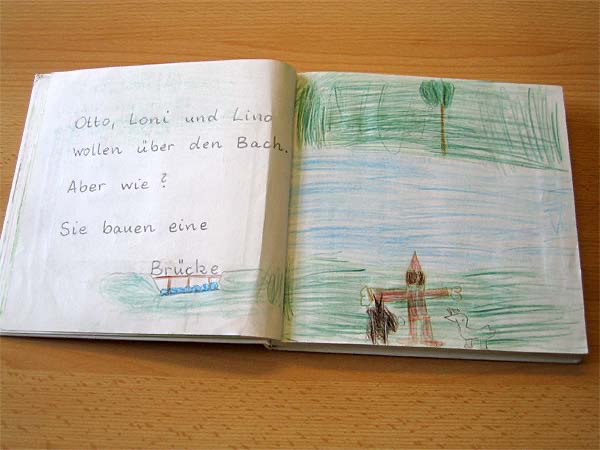 Otto, Loni und Lino
wollen über den Bach.
Aber wie?
Sie bauen eine
Brücke